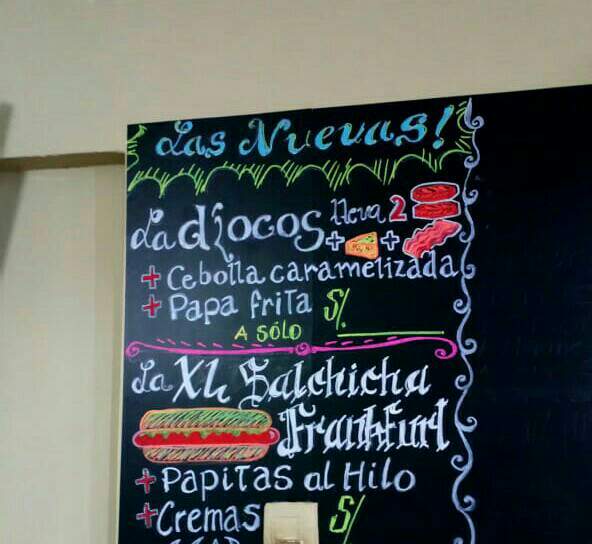 Las Nuevas!
La djocos lleva 2
+ +
+ Cebolla caramelizada
+ Papa frita S/.
A SÓLO
La XL Salchicha
Frankfurt
+ Papitas al Hilo
+ Cremas S/